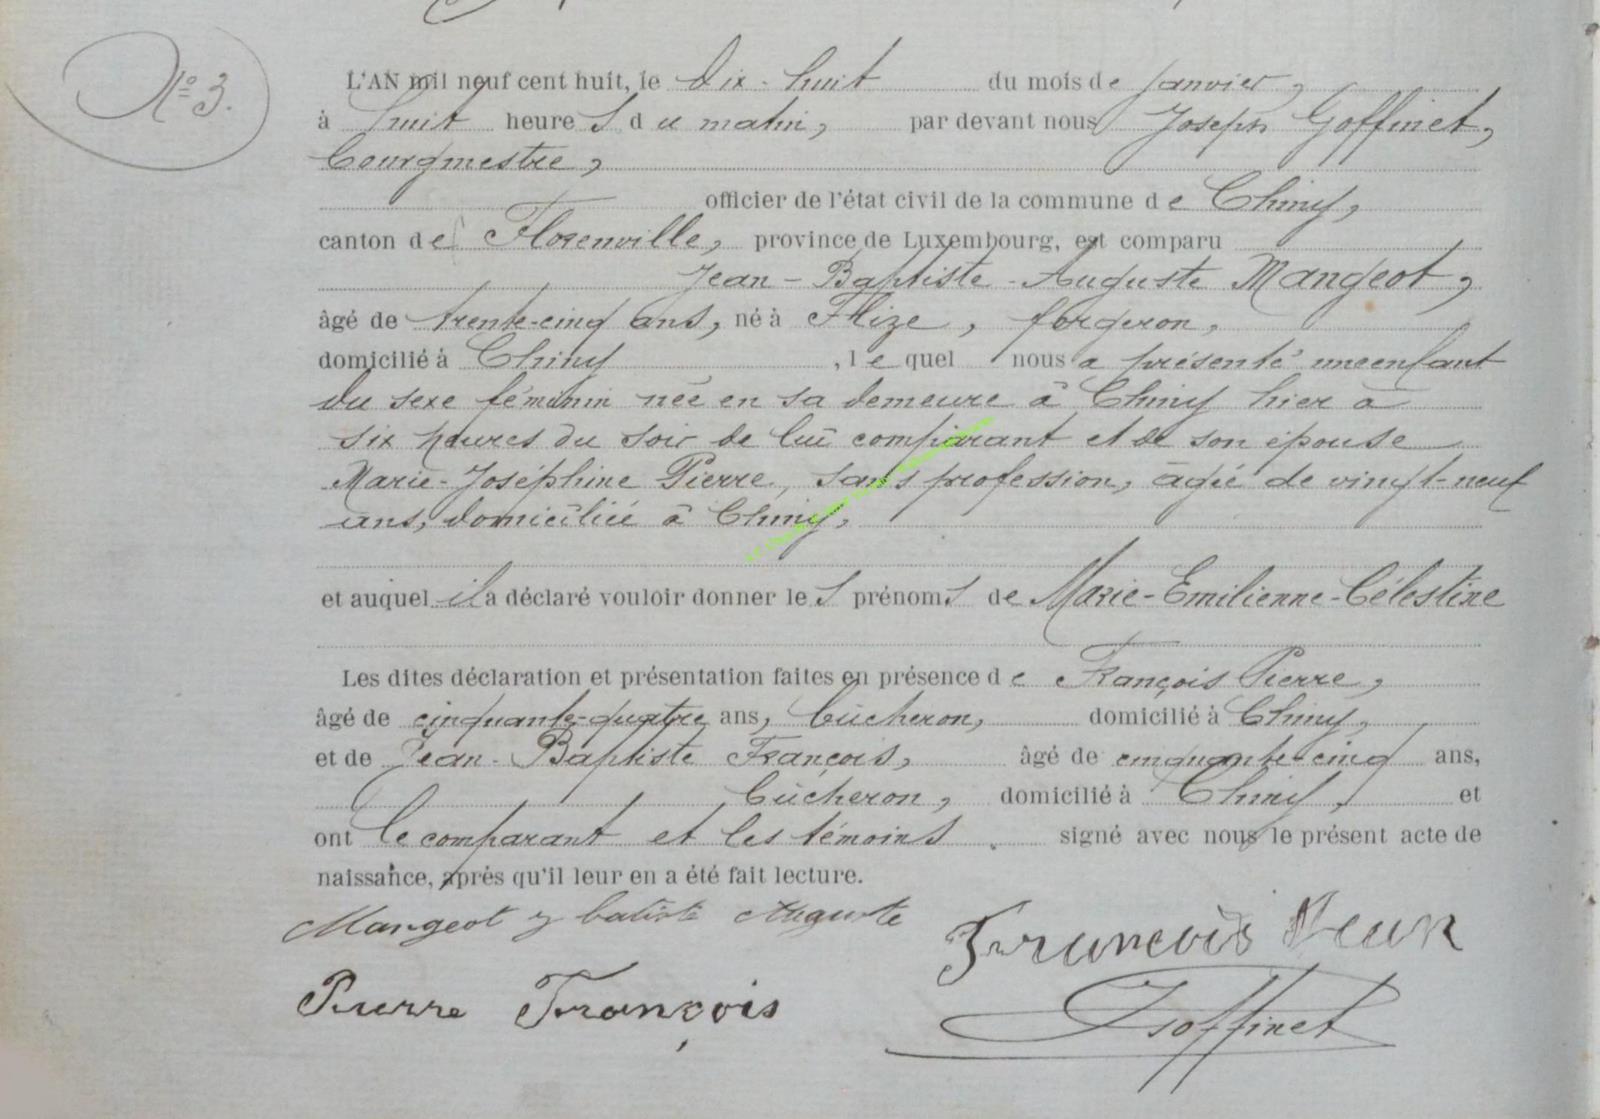 N° 3.
L'AN mil neuf cent huit, le dix-huit du mois de janvier,
à huit heures du matin, par devant nous Joseph Goffinet,
bourgmestre,
officier de l'état civil de la commune de Chiny,
canton de Florenville, province de Luxembourg, est comparu
Jean-Baptiste-Auguste Mangeot,
âgé de trente-cinq ans, né à Flize, forgeron,
domicilié à Chiny, lequel nous a présenté une enfant
du sexe féminin née en sa demeure à Chiny hier à
six heures du soir de lui comparant et de son épouse
Marie-Joséphine Pierre, sans profession, âgée de vingt-neuf
ans, domiciliée à Chiny,
et auquel il a déclaré vouloir donner les prénoms de Marie-Emilienne-Célestine
Les dites déclaration et présentation faites en présence de François Pierre,
âgé de cinquante-quatre ans, bûcheron, domicilié à Chiny,
et de Jean-Baptiste François, âgé de cinquante-cinq ans,
bûcheron, domicilié à Chiny, et
ont le comparant et les témoins signé avec nous le présent acte de
naissance, après qu'il leur en a été fait lecture.
Mangeot J batiste Auguste
François Jean
Pierre François
Goffinet